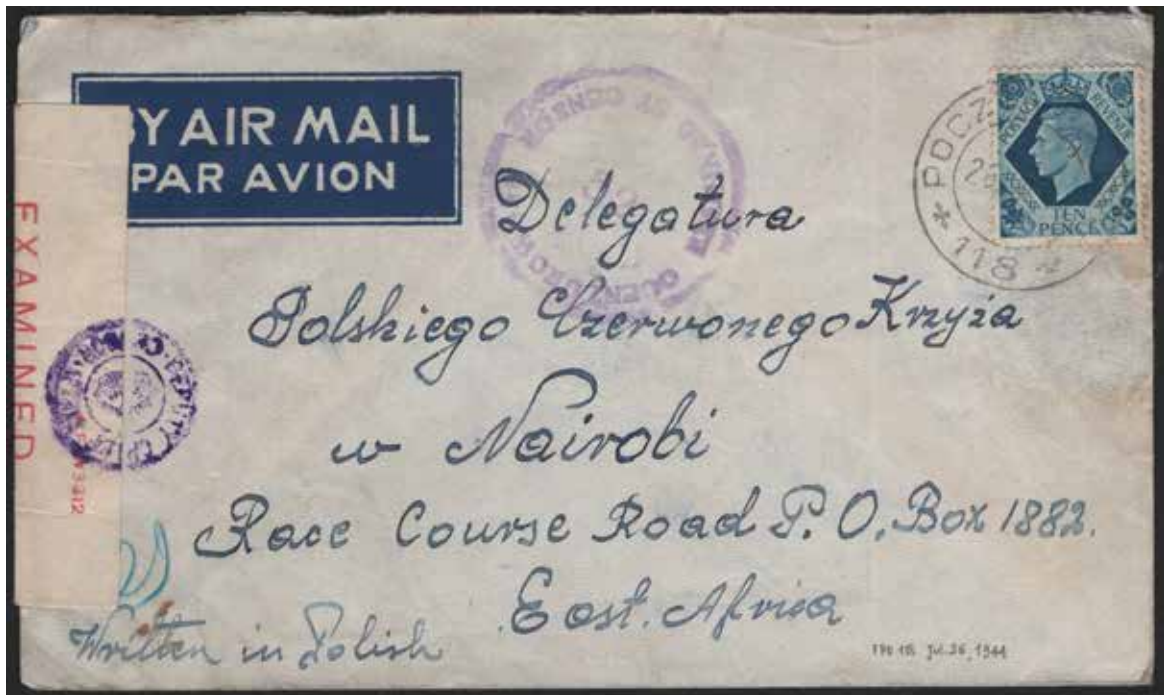 BY AIR MAIL
PAR AVION
POSTAGE REVENUE
TEN
PENCE
118
Delegatura
Polskiego Czerwonego Krzyża
w Nairobi
Race Course Road P. O. Box 1882.
East. Africa
EXAMINED
Written in Polish
Jul. 26, 1944